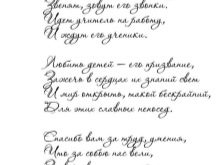 Звенят, зовут его звонки.
Идет учитель на работу,
И ждут его ученики.
Любить детей – его призвание,
Зажечь в сердцах их знаний свет
И мир открыть, такой бескрайний,
Для этих славных непосед.
Спасибо вам за труд, умения,
Что за собою нас вели,